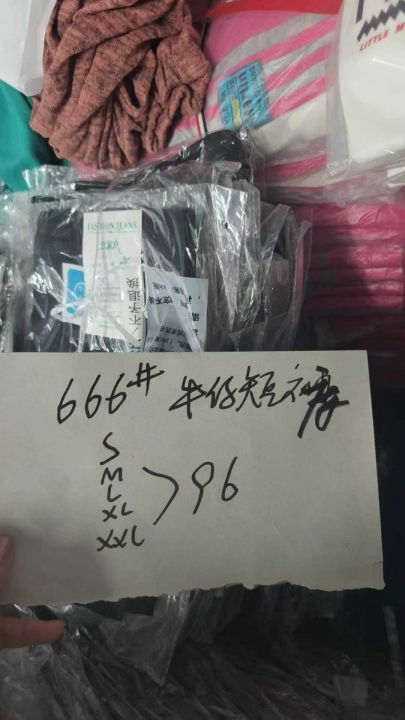 LITTLE M
FASHION JEANS
不予退换
666# 牛仔短裤
S
M
L
XL
XXL
96